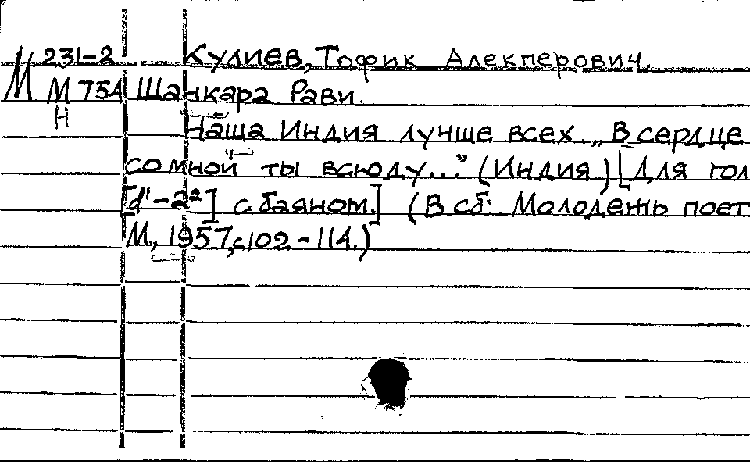 М 231-2 Кулиев, Тофик Алекперович.
М 754 Шанкара Рави.
Н Наша Индия лучше всех. „В сердце
со мной ты всюду..." (Индия) [Для гол
[d¹-2²] с баяном.] (В сб: Молодежь поет
М., 1957, с.102-114.)